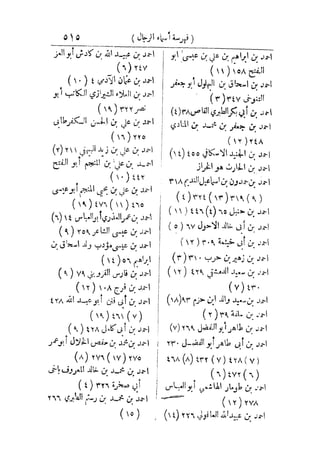 ( فهرسة أسماء الرجال ) ٥١٥
احمد بن ابراهيم بن علي بن عيسى ابو
الفتح ١٥٨ (١١)
احمد بن اسحاق بن البهلول أبو جعفر
التنوخي ٣٤٧ (٣)
احمد بن أبي بكر الطبري القاص ٣٨ (٤)
احمد بن جعفر بن محمد بن المنادي
٢٤٨ (١٢)
احمد بن الجنيد الاسكافي ٤٥٥ (١٤)
احمد بن الحارث هو الخراز
احمد بن حمدون بن اسماعيل النديم ٣١٨
(٩) ٣١٩ (١٣) ٣٢٤ (٤)
احمد بن حنبل ٦٥ (٤) ٤٤٦ (١١)
احمد بن أبي خالد الاحول ٦٧ (٥)
احمد بن أبي خيثمة ٣٠٩ (١٢)
احمد بن زهير بن حرب ٣١٠ (٣)
احمد بن سعيد الدمشقي ٤٢٩ (١٢)
٤٣٠ (٧)
احمد بن سعيد والد ابن حزم ٩٣ (١٨)
احمد بن سلمة ٣٩ (٢)
احمد بن طاهر أبو الفضل ٢٦٩ (٧)
احمد بن أبي طاهر أبو الفضل ٢٣٠
(٧) ٤٢٨ (٧) ٤٣٢ (٨) ٤٦٨
(٦) ٤٧٢ (٦)
احمد بن طومار الهاشمي أبو العباس
٢٧٨ (١٢)
احمد بن عبيد الله العاقولي ٢٢٦ (١٤)
احمد بن عبيد الله بن كادش أبو العز
٢٤٧ (٦)
احمد بن عثمان الآدمي ٤ (١٠)
احمد بن العلاء الشيرازي الكاتب أبو
نصر ٣٢٢ (١٩)
احمد بن علي بن الحسن الكفرطابي
٢٢٥ (١٦)
احمد بن علي بن زيد البيهقي ٢١١ (٢)
احمد بن علي بن المنجم أبو الفتح
٤٤٢ (١٠)
احمد بن علي بن يحيى المنجم أبو عيسى
٤٦٥ (١١) ٤٧٦ (١٩)
احمد بن عمر العذري أبو العباس ١٤ (٦)
احمد بن عيسى الشاعر ٢٥٩ (٩)
احمد بن عيسى مؤدب ولد اسحاق بن
ابراهيم ٥٦ (١٤)
احمد بن فارس القزويني ٧٩ (٩)
احمد بن فرج ١٠٨ (١٢)
احمد بن أبي فنن أبو عبد الله ٤٢٨
(٧) ٤٦١ (١٩)
احمد بن أبي كامل ٤٢٨ (٩)
احمد بن محمد بن حفص الخلال أبو عمر
٢٧٥ (١٧) ٢٧٦ (٨)
احمد بن محمد بن خالد المعروف باخي
أبي صخرة ٣٢٦ (٤)
احمد بن محمد بن رستم الطبري ٢٦٦
(١٥)